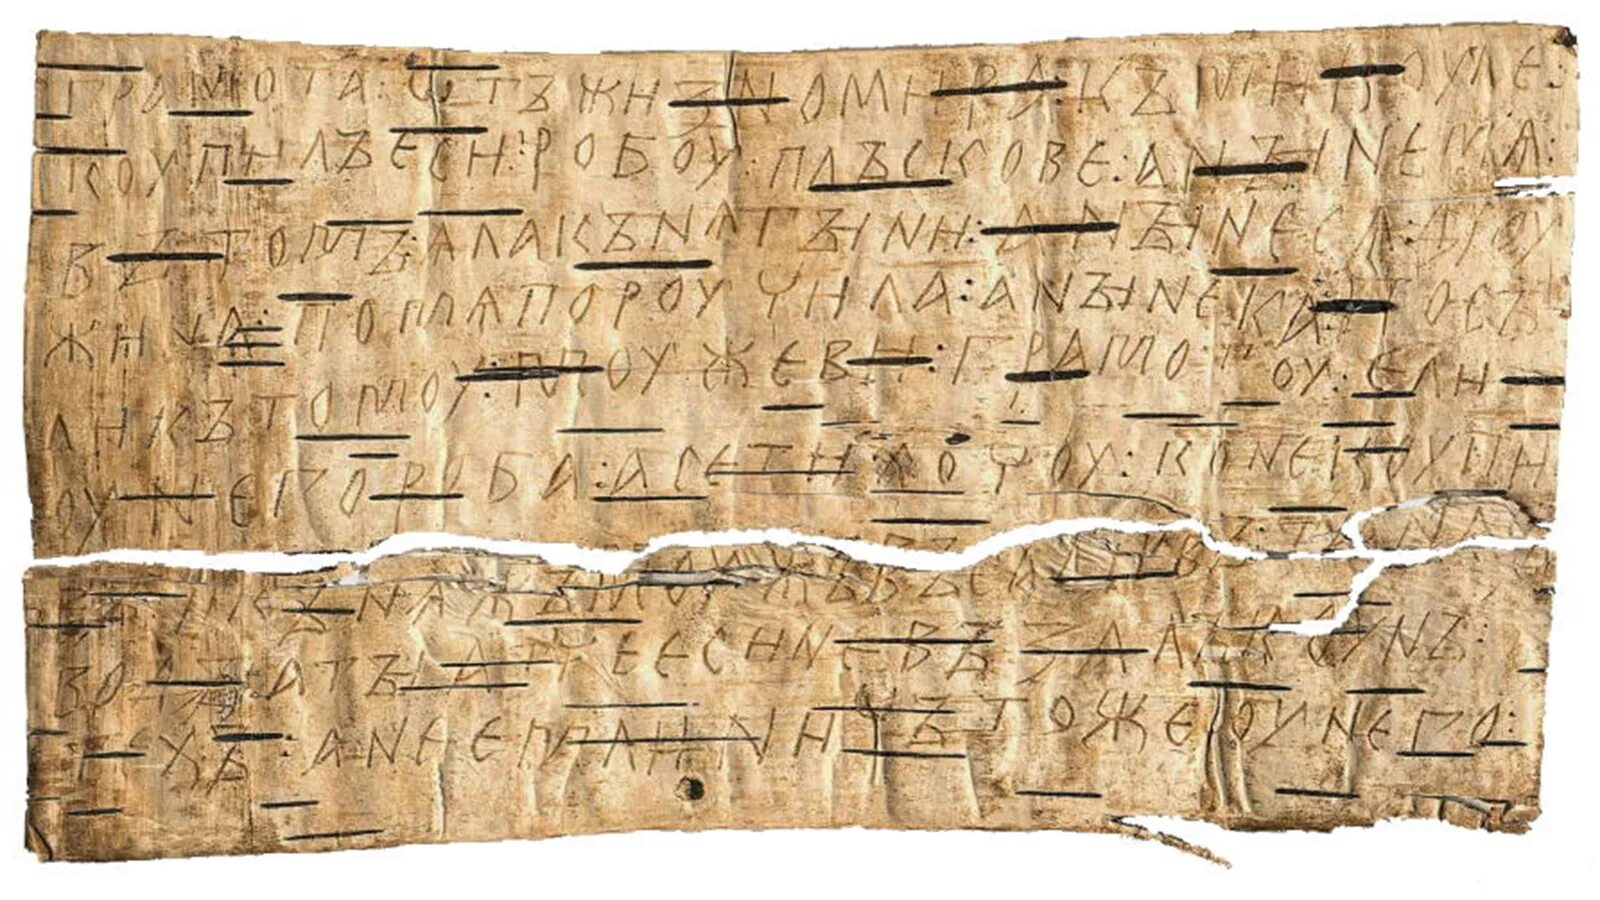 грамота : ѡтъ жизномира : къ микоуле :
коупилъ еси : робоу : плъскове : а нъіне мѧ :
въ томъ : ѧла кънѧгъіни : а нъіне сѧ дроу
жина : по мѧ пороучила : а нъіне ка посъ
ли къ томоу : моужеви : грамотоу : ели
оу него роба : а се ти хочоу : коне коупи
въ : и кънѧжъ моужъ въсадивъ : та на съ
водъі : а тъі атче еси не възалъ коунъ :
техъ : а не емли : ничъто же оу него :